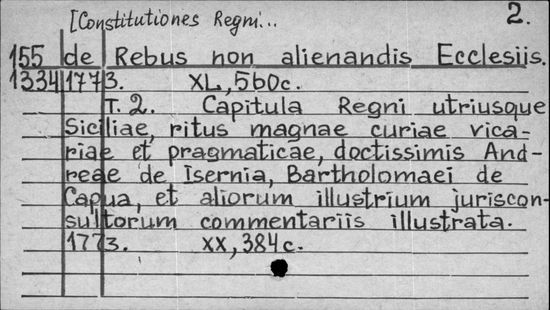 [Constitutiones Regni... 2.
155 de Rebus non alienandis Ecclesiis.
1334 1773. XL, 560c.
T. 2. Capitula Regni utriusque
Siciliae, ritus magnae curiae vica-
riae et pragmaticae, doctissimis And-
reae de Isernia, Bartholomaei de
Capua, et aliorum illustrium juriscon-
sultorum commentariis illustrata.
1773. XX, 384c.